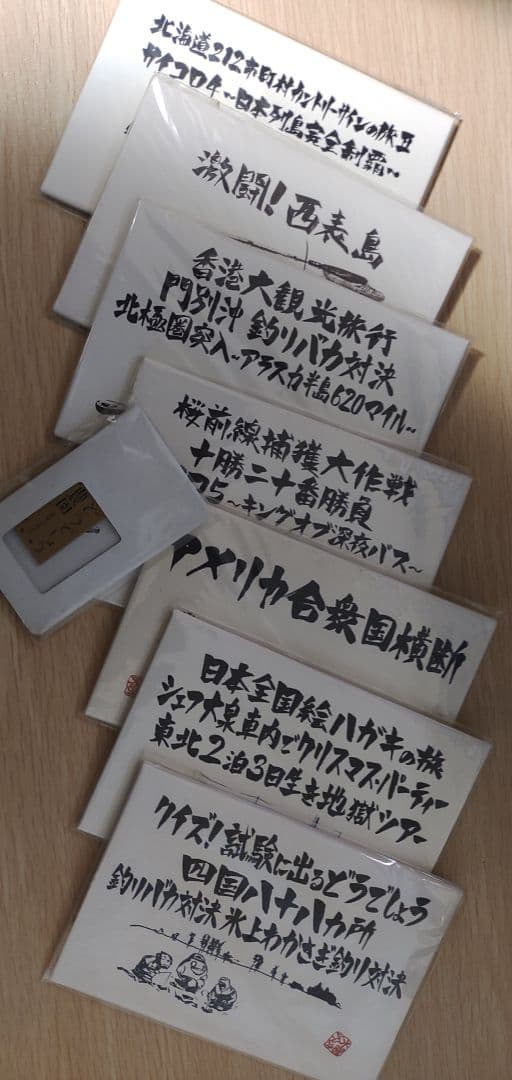 北海道212市町村カントリーサインの旅II
サイコロ4~日本列島完全制覇~
激闘!西表島
香港大観光旅行
門別沖 釣りバカ対決
北極圏突入~アラスカ半島620マイル~
桜前線捕獲大作戦
十勝二十番勝負
~キングオブ深夜バス~
アメリカ合衆国横断
日本全国絵ハガキの旅
シェフ大泉車内でクリスマス・パーティー
東北2泊3日生き地獄ツアー
クイズ!試験に出るどうでしょう
四国八十八カ所
釣りバカ対決 氷上わかさぎ釣り対決